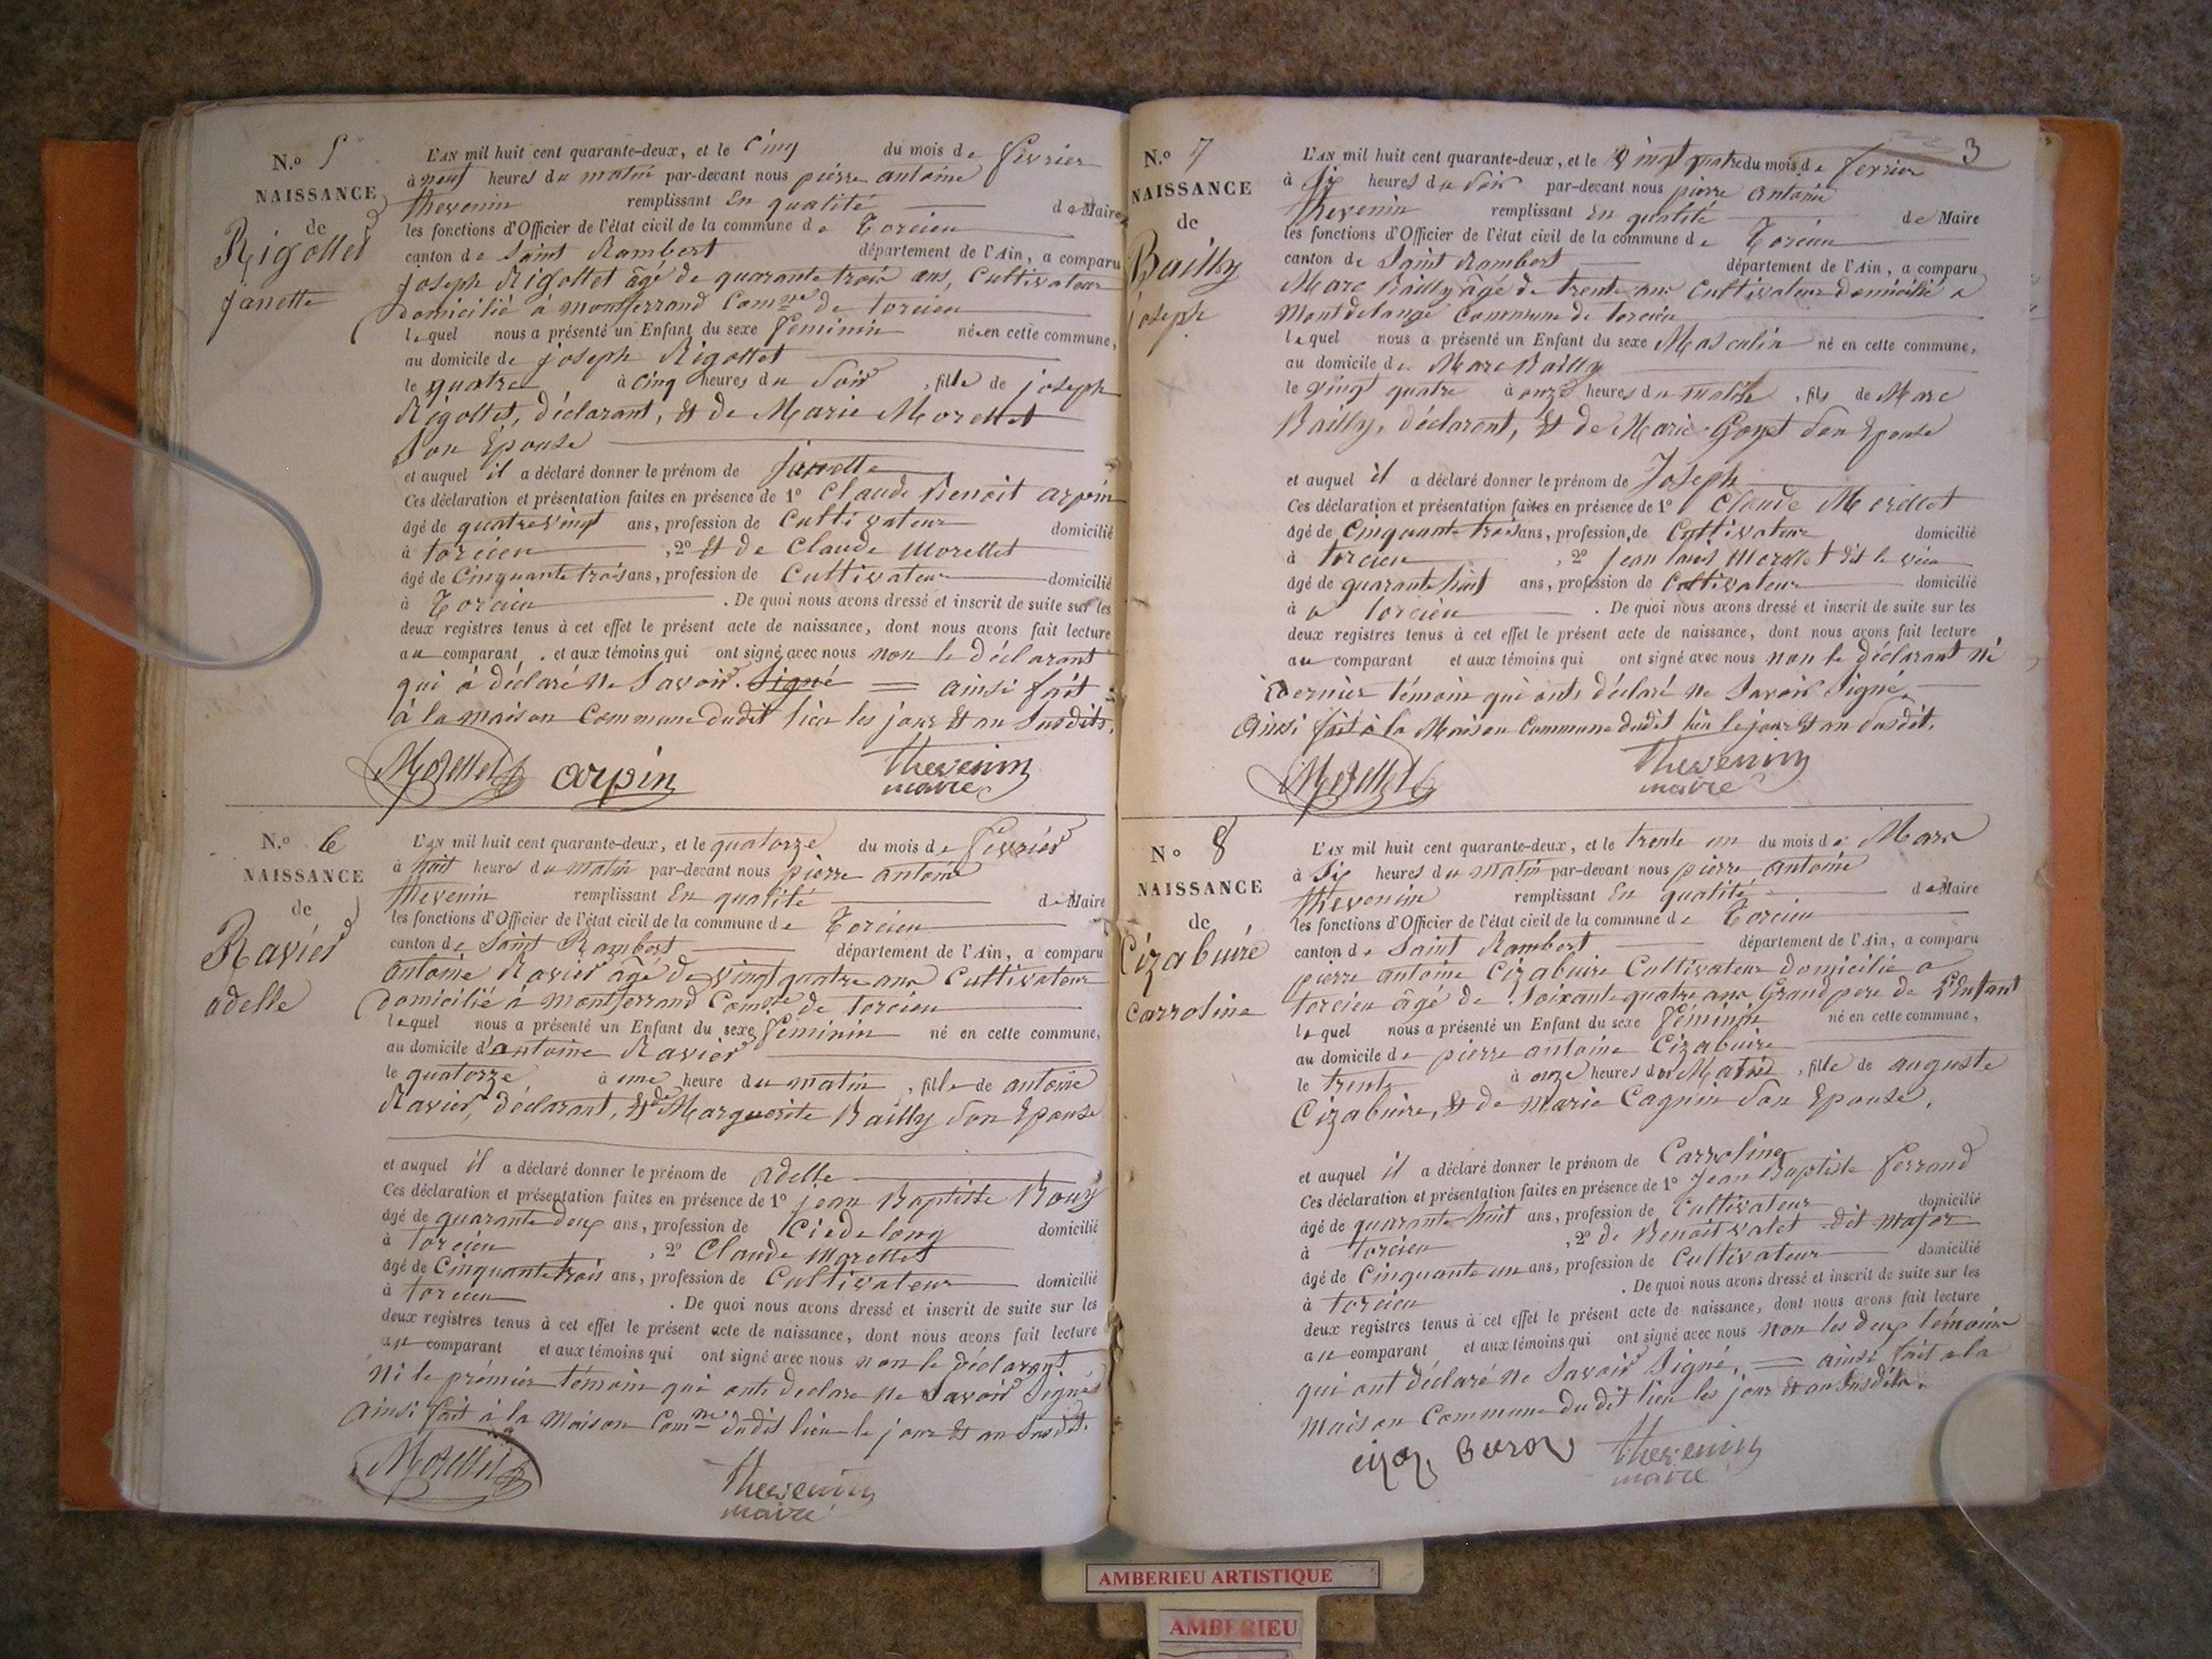 N.o 5
NAISSANCE
de
Rigollet
janette
L'AN mil huit cent quarante-deux, et le Cinq du mois de fevrier
à neuf heures du matin par-devant nous pierre antoine
thevenin remplissant En qualité de Maire
les fonctions d'Officier de l'état civil de la commune de Torcieu
canton de Saint Rambert département de l'Ain, a comparu
joseph Rigollet âgé de quarante trois ans, Cultivateur
domicilié à montferrand Comne de torcieu
lequel nous a présenté un Enfant du sexe feminin née en cette commune,
au domicile de joseph Rigollet
le quatre à cinq heures du Soir, fille de joseph
Rigollet, déclarant, et de Marie Morellet
Son Epouse
et auquel il a déclaré donner le prénom de janette
Ces déclaration et présentation faites en présence de 1o Claude Benoit arpin
âgé de quatrevingt ans, profession de Cultivateur domicilié
à torcieu, 2o et de Claude Morellet
âgé de Cinquante trois ans, profession de Cultivateur domicilié
à Torcieu. De quoi nous avons dressé et inscrit de suite sur les
deux registres tenus à cet effet le présent acte de naissance, dont nous avons fait lecture
au comparant, et aux témoins qui ont signé avec nous non le déclarant
qui à déclaré ne Savoir Signé = ainsi fait
à la maison Commune dudit lieu les jour et an Susdits.
Morellet arpin thevenin
maire
N.o 6
NAISSANCE
de
Ravier
adelle
L'AN mil huit cent quarante-deux, et le quatorze du mois de fevrier
à huit heures du matin par-devant nous pierre antoine
thevenin remplissant En qualité de Maire
les fonctions d'Officier de l'état civil de la commune de Torcieu
canton de Saint Rambert département de l'Ain, a comparu
antoine Ravier âgé de vingt quatre ans Cultivateur
domicilié à montferrand Comne de torcieu
lequel nous a présenté un Enfant du sexe féminin né en cette commune,
au domicile d'antoine Ravier
le quatorze à une heure du matin, fille de antoine
Ravier, déclarant, et de Marguerite Bailly Son Epouse
et auquel il a déclaré donner le prénom de adelle
Ces déclaration et présentation faites en présence de 1o jean Baptiste Rouy
âgé de quarante deux ans, profession de domicilié
à torcieu, 2o Claude Morellet
âgé de Cinquante trois ans, profession de Cultivateur domicilié
à torcieu. De quoi nous avons dressé et inscrit de suite sur les
deux registres tenus à cet effet le présent acte de naissance, dont nous avons fait lecture
au comparant et aux témoins qui ont signé avec nous non le déclarant
ni le prémier témoin qui onts declare ne Savoir Signé
ainsi fait à la maison Comne dudit lieu le jour et an Susdit.
Morellet thevenin
maire
3
N.o 7
NAISSANCE
de
Bailly
joseph
L'AN mil huit cent quarante-deux, et le vingt quatre du mois de fevrier
à Six heures du Soir par-devant nous pierre antoine
thevenin remplissant En qualité de Maire
les fonctions d'Officier de l'état civil de la commune de Torcieu
canton de Saint Rambert département de l'Ain, a comparu
Marc Bailly âgé de trente ans Cultivateur domicilié a
Montdelange Commune de torcieu
lequel nous a présenté un Enfant du sexe Masculin né en cette commune,
au domicile de Marc Bailly
le vingt quatre à onze heures du matin, fils de Marc
Bailly, déclarent, et de Marie Goyet Son Epouse
et auquel il a déclaré donner le prénom de Joseph
Ces déclaration et présentation faites en présence de 1o Claude Morellet
âgé de Cinquante trois ans, profession de Cultivateur domicilié
à torcieu, 2o jean louis Morellet dit le
âgé de quarante huit ans, profession de Cultivateur domicilié
à a torcieu. De quoi nous avons dressé et inscrit de suite sur les
deux registres tenus à cet effet le présent acte de naissance, dont nous avons fait lecture
au comparant et aux témoins qui ont signé avec nous non le déclarant ni
dernier témoin qui onts déclaré ne Savoir Signé.
Ainsi fait à la Maison Commune dudit lieu le jour et an Susdit.
Morellet thevenin
maire
No 8
NAISSANCE
de
Cizabuire
Carroline
L'AN mil huit cent quarante-deux, et le trente un du mois de Mars
à Six heures du matin par-devant nous pierre antoine
thevenin remplissant En qualité de Maire
les fonctions d'Officier de l'état civil de la commune de Torcieu
canton de Saint Rambert département de l'Ain, a comparu
pierre antoine Cizabuire Cultivateur domicilié a
torcieu âgé de Soixante quatre ans Grand pere de L'Enfant
lequel nous a présenté un Enfant du sexe féminin né en cette commune,
au domicile de pierre antoine Cizabuire
le trente à onze heures du Matin, fille de auguste
Cizabuire, et de Marie Cagnin Son Epouse.
et auquel il a déclaré donner le prénom de Carroline
Ces déclaration et présentation faites en présence de 1o Jean Baptiste ferrand
âgé de quarante huit ans, profession de Cultivateur domicilié
à torcieu, 2o de Benoit valet dit major
âgé de Cinquante un ans, profession de Cultivateur domicilié
à torcieu. De quoi nous avons dressé et inscrit de suite sur les
deux registres tenus à cet effet le présent acte de naissance, dont nous avons fait lecture
au comparant et aux témoins qui ont signé avec nous non les deux témoins
qui ont déclaré ne Savoir Signé. = ainsi fait a la
maison Commune dudit lieu les jour et an Susdits.
thevenin
maire
AMBERIEU ARTISTIQUE
AMBERIEU